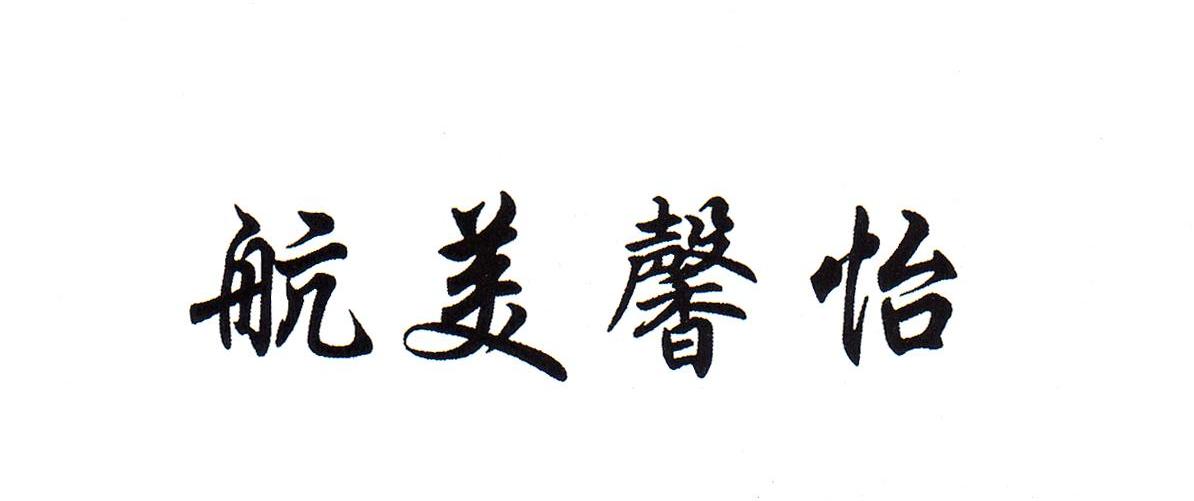 航美馨怡